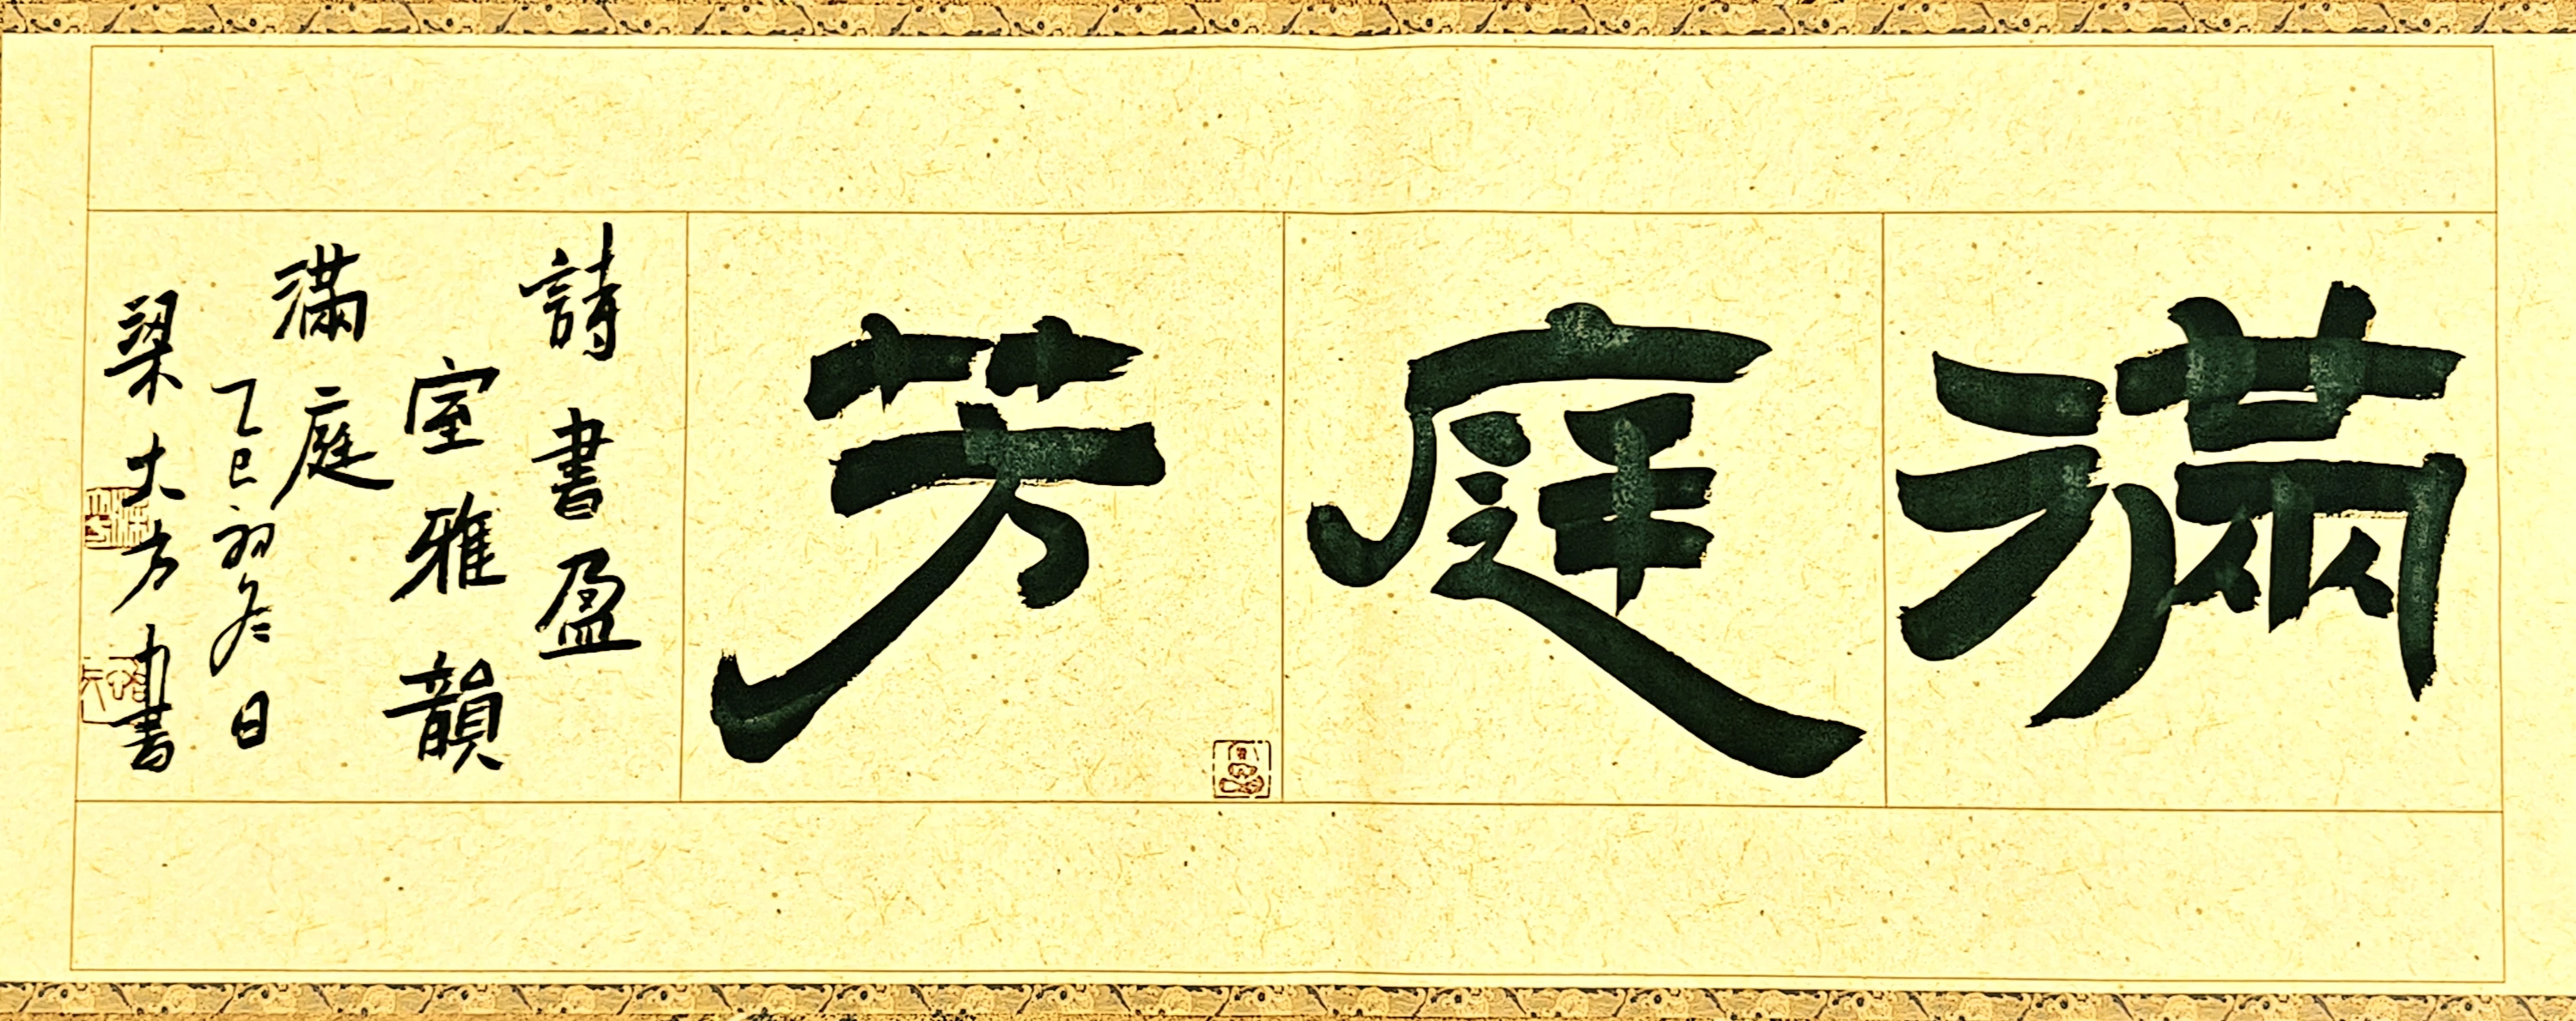 滿庭芳
詩書盈
室雅韻
滿庭
乙巳初冬日
梁大方書